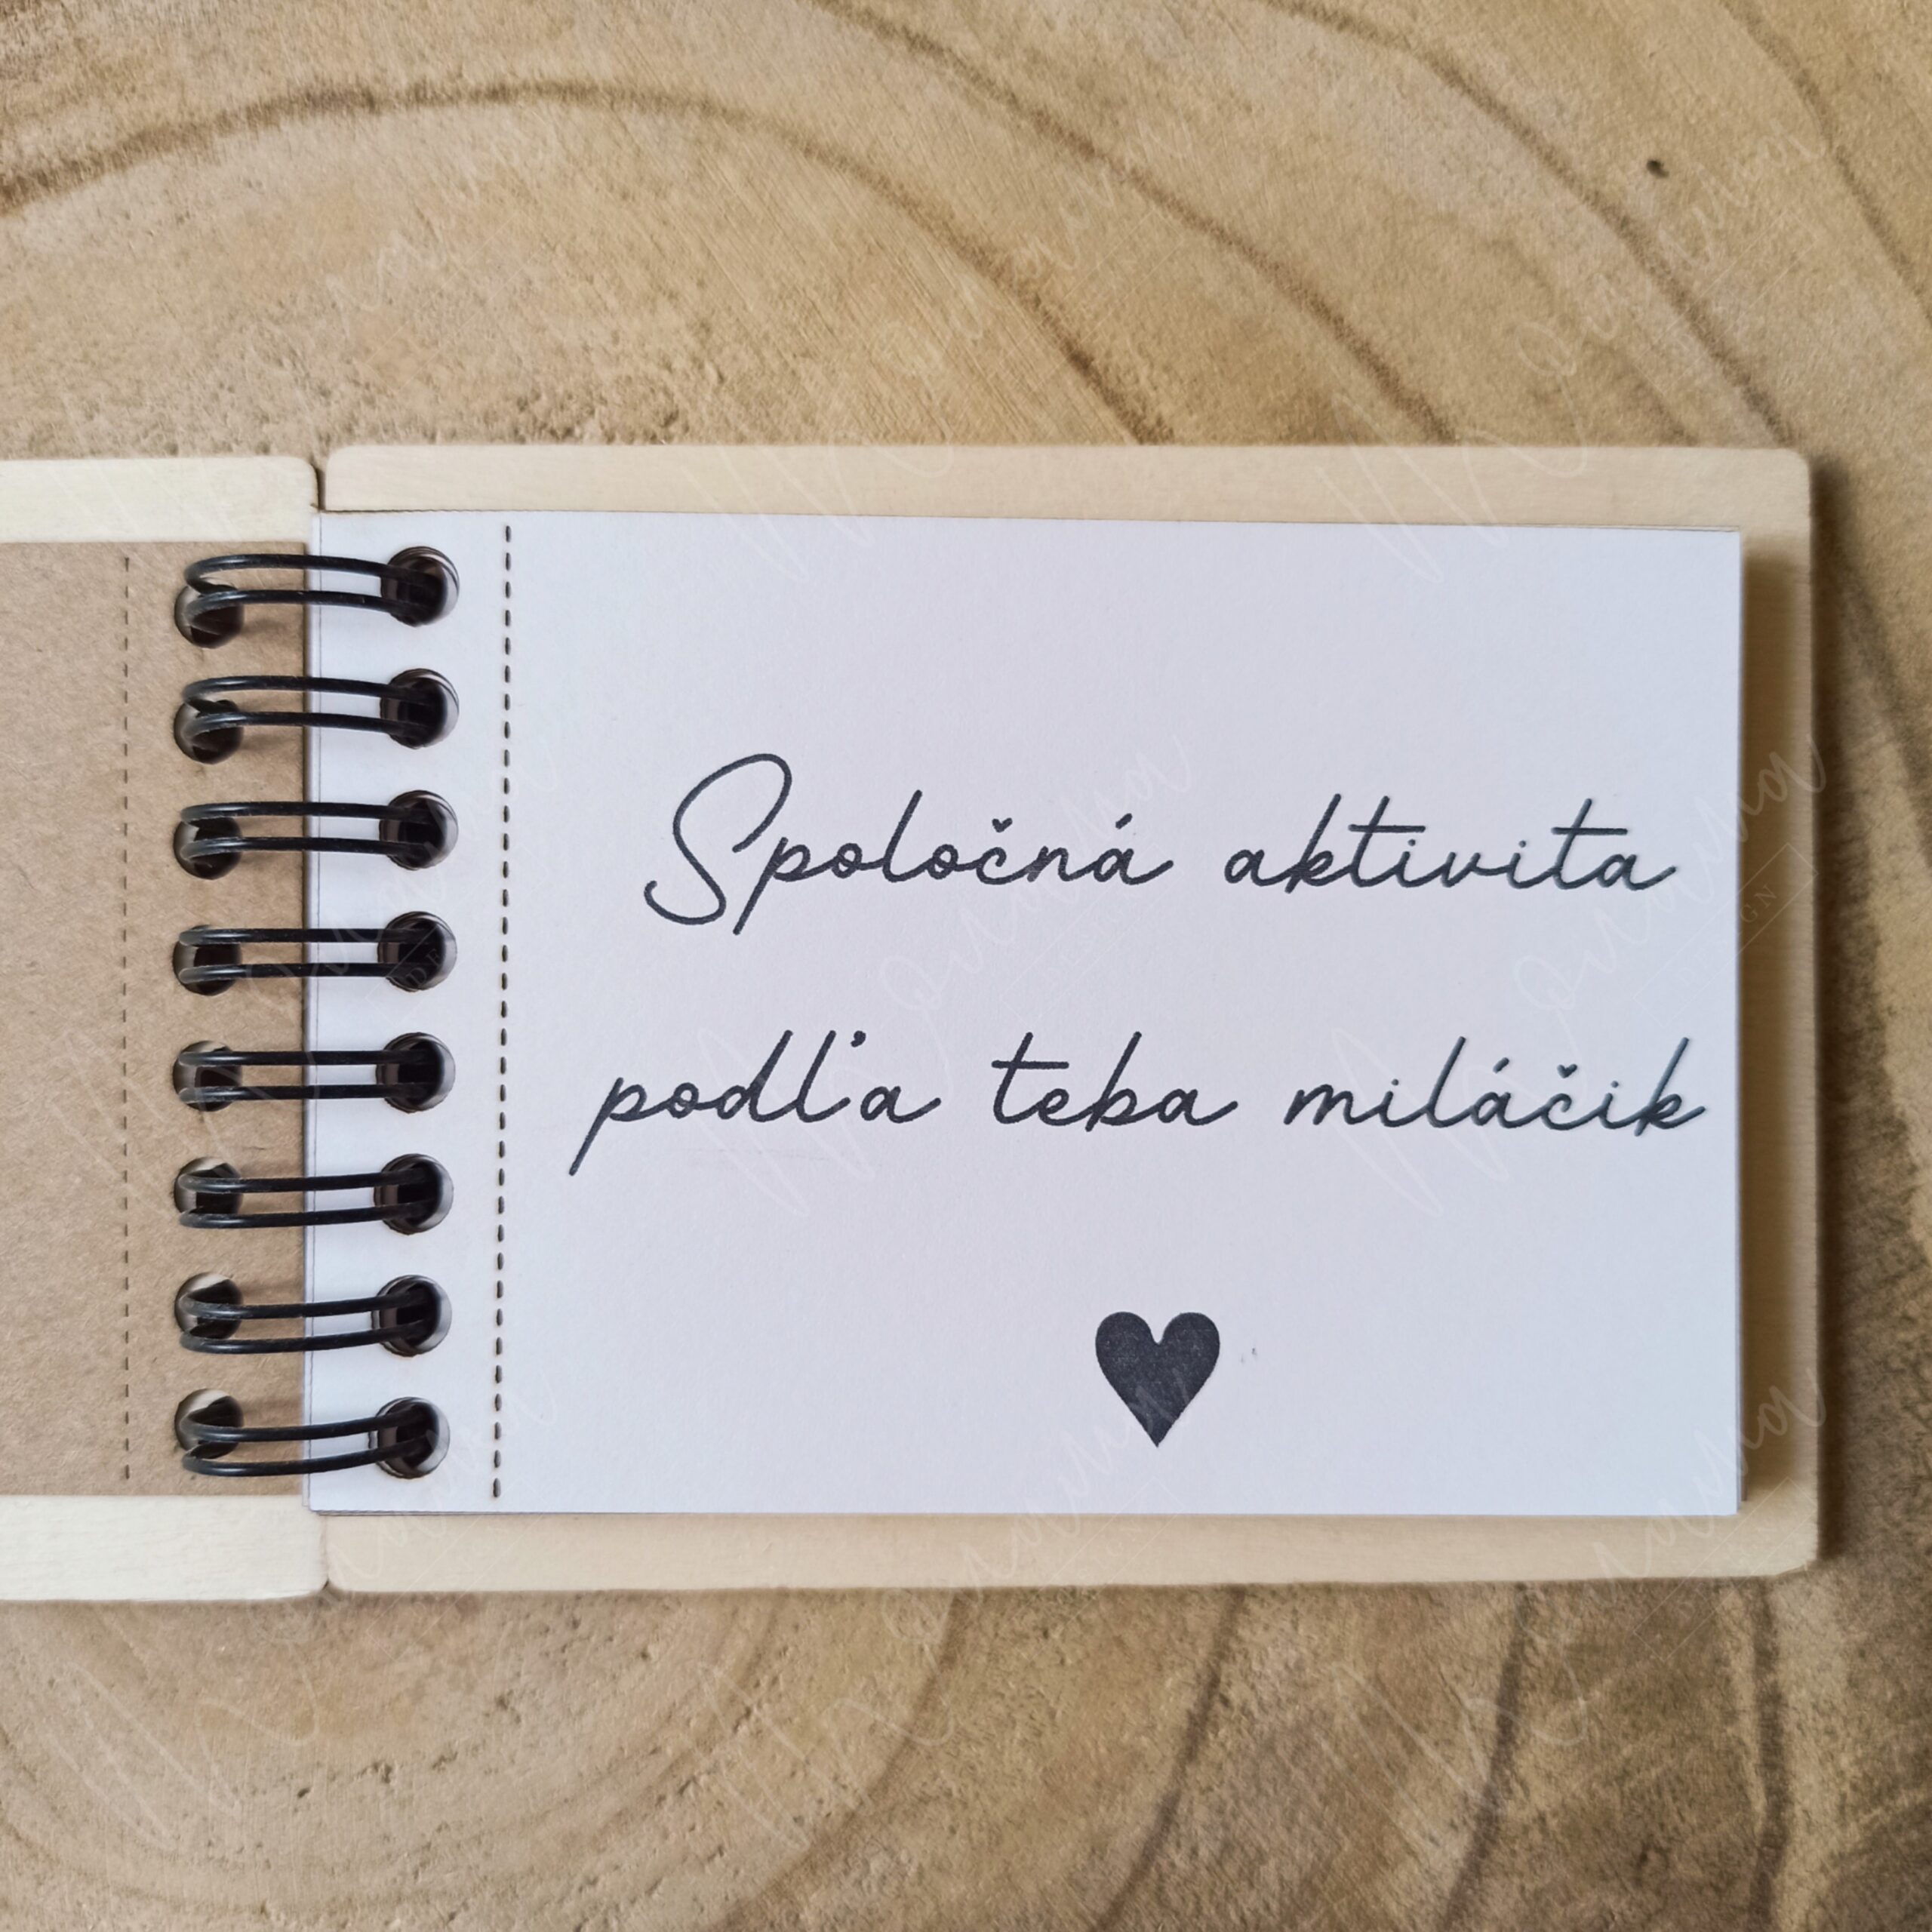 Spoločná aktivita
podľa teba miláčik